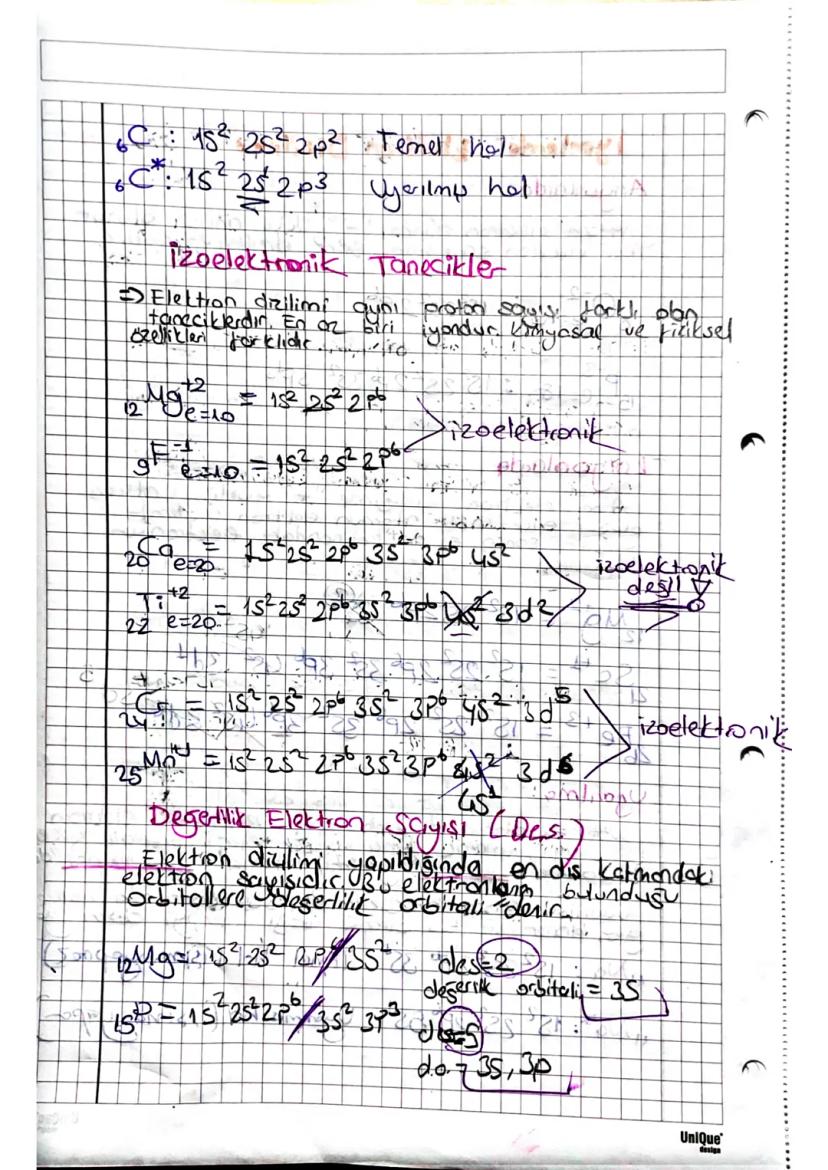 ₆C : 1s² 2s² 2p² Temel hal
₆C* : 1s² 2s¹ 2p³ Uyarılmış hal
İzoelektronik Tanecikler
⇒ Elektron dizilimi aynı proton sayısı farklı olan
taneciklerdir. En az biri iyondur. Kimyasal ve fiziksel
özellikleri farklıdır.
₁₂Mg⁺² e=10 = 1s² 2s² 2p⁶
izoelektronik
₉F⁻¹ e=10 = 1s² 2s² 2p⁶
₂₀Ca e=20 = 1s² 2s² 2p⁶ 3s² 3p⁶ 4s²
izoelektronik
değil!
₂₂Ti⁺² e=20 = 1s² 2s² 2p⁶ 3s² 3p⁶ 4s² 3d²
₂₄Cr = 1s² 2s² 2p⁶ 3s² 3p⁶ 4s² 3d⁵
izoelektronik
₂₅Mn = 1s² 2s² 2p⁶ 3s² 3p⁶ 4s² 3d
4s¹
Değerlilik Elektron Sayısı (Des.)
Elektron dizilimi yapıldığında en dış katmandaki
elektron sayısıdır. Bu elektronların bulunduğu
orbitallere "değerlilik orbitali" denir.
₁₂Mg = 1s² 2s² 2p⁶ / 3s² des=2
değerlik orbitali = 3s
₁₅P = 1s² 2s² 2p⁶ / 3s² 3p³ des=5
d.o. = 3s, 3p
UniQue
design